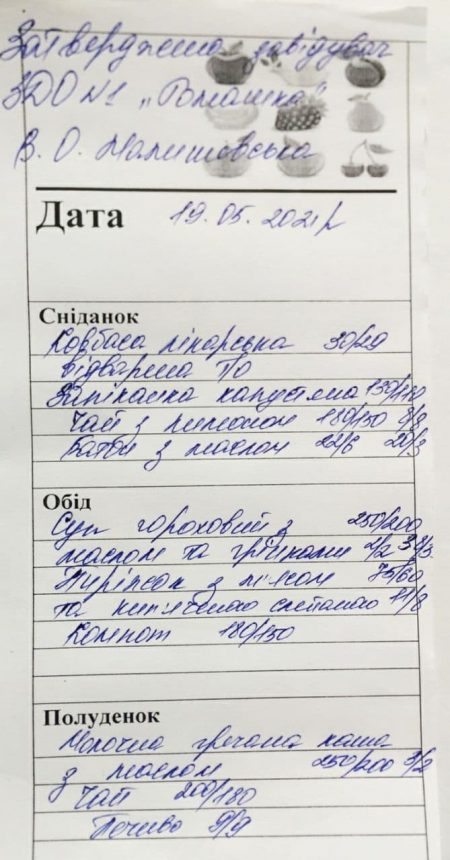 Затверджено завідувач
ЗДО №1 "Ромашка"
В. О. Малишовська
Дата 19.05.2021р
Сніданок
Ковбаса лікарська 30/20
відварена Т/О
Запіканка капустяна 130/110
Чай з лимоном 180/150 8/8
Батон з маслом 22/6 20/3
Обід
Суп гороховий з 250/200
маслом та грінками 2/2
Пиріжок з м'ясом 75/60
та кип'яченою сметаною 11/8
Компот 180/150
Полуденок
Молочна гречана каша
з маслом 250/200 3/2
Чай 200/180
Печиво 9/9